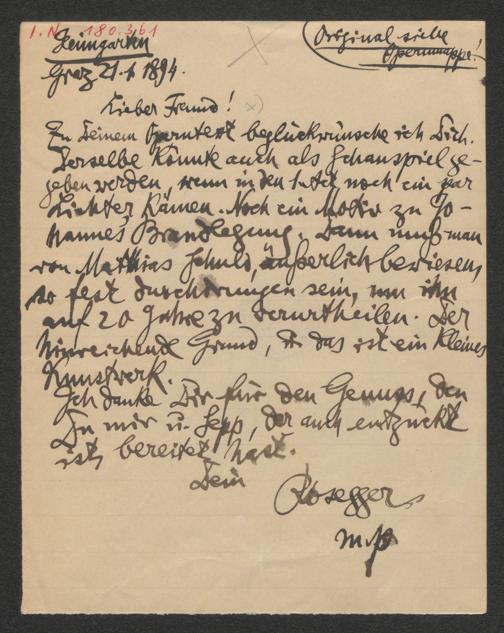 I.N. 180.361
Heimgarten
(Original siehe
Opernmappe!
Graz 21.1 1894.
Lieber Freund! x)
Zu Deinem Operntext beglückwünsche ich Dich.
Derselbe könnte auch als Schauspiel ge-
geben werden, wenn in den 1. Act noch ein par
Lichter kämen. Noch ein Motiv zu Jo-
hannes Brandlegung. Dann muß man
von Mathias Schuld, äußerlich bewiesen,
so fest durchdrungen sein, um ihn
auf 20 Jahre zu verurtheilen. Der
hinreichende Grund, u. das ist ein kleines
Kunstwerk.
Ich danke Dir für den Genuss, den
Du mir u. Sepp, der auch entzückt
ist, bereitet hast.
Dein
Rosegger
m.p